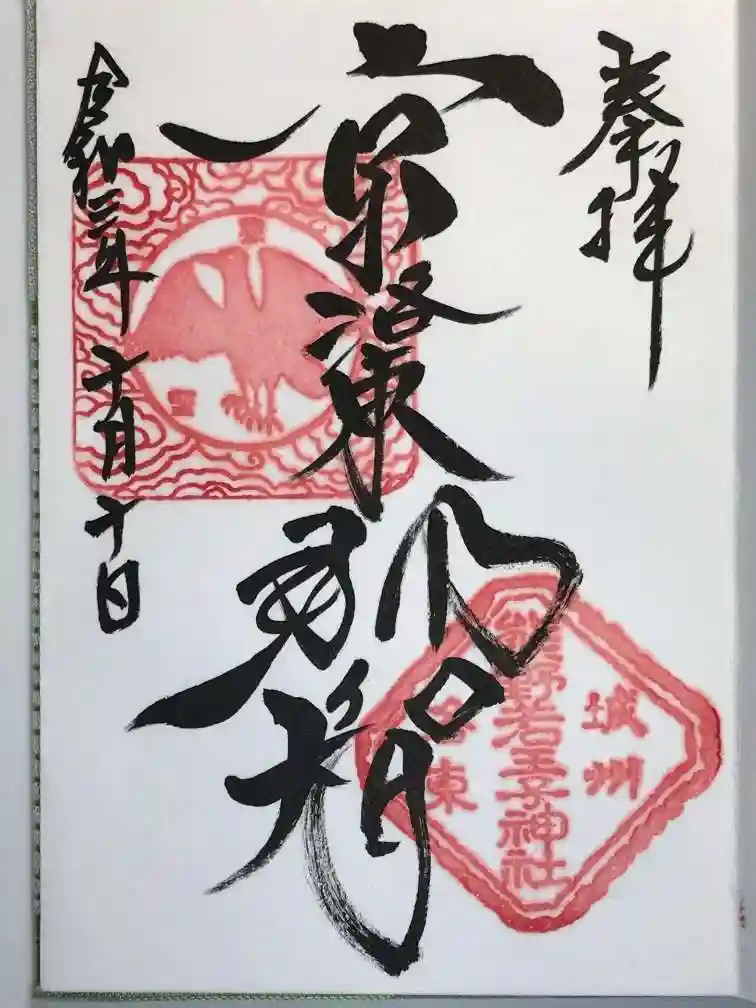 奉拝
京洛東
那智
令和三年十月十日
城州
熊野若王子神社
洛東